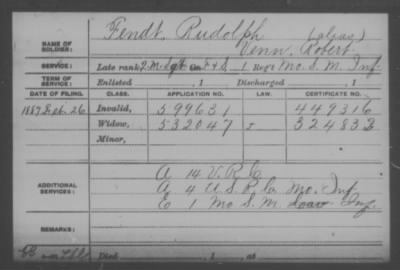 Fendt, Rudolph (alias)
NAME OF SOLDIER: Venn, Robert
SERVICE: Late rank Q.M. Sgt Co. F & S, 1 Reg't Mo. S. M. Inf.
TERM OF SERVICE: Enlisted , 1 Discharged , 1
DATE OF FILING. CLASS. APPLICATION NO. LAW. CERTIFICATE NO.
1887 Sept. 26 Invalid, 599631 449316
Widow, 532047 324833
Minor,
A 14 V. R. C.
ADDITIONAL SERVICES: A 4 U. S. R. C. Mo. Inf.
E 1 Mo S. M. Inf.
REMARKS:
Died , 1 , at